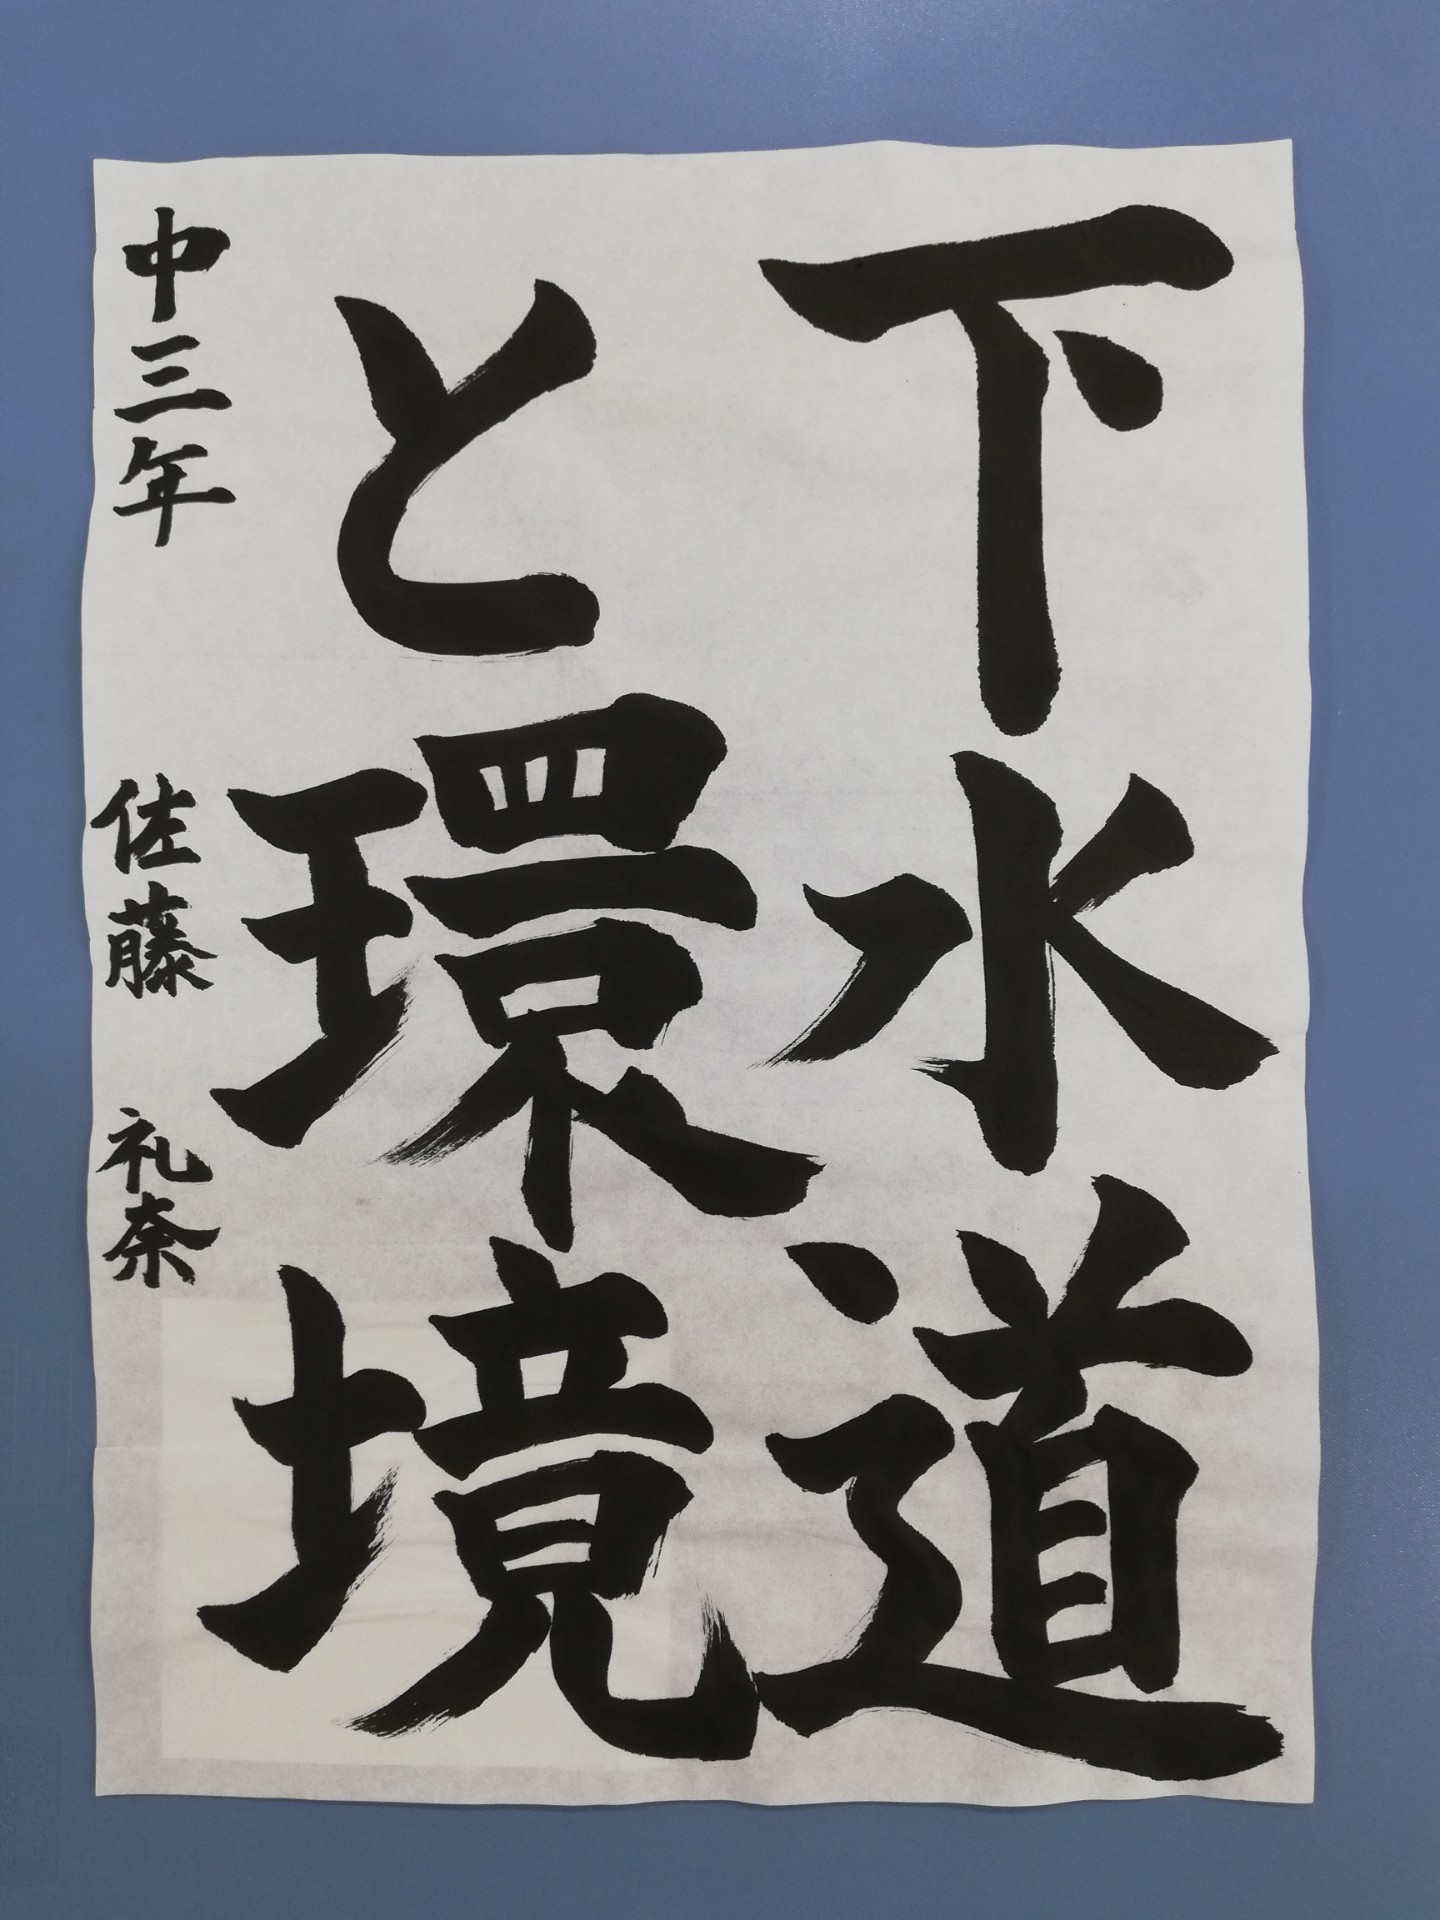 下水道
と環境
中三年 佐藤 礼奈